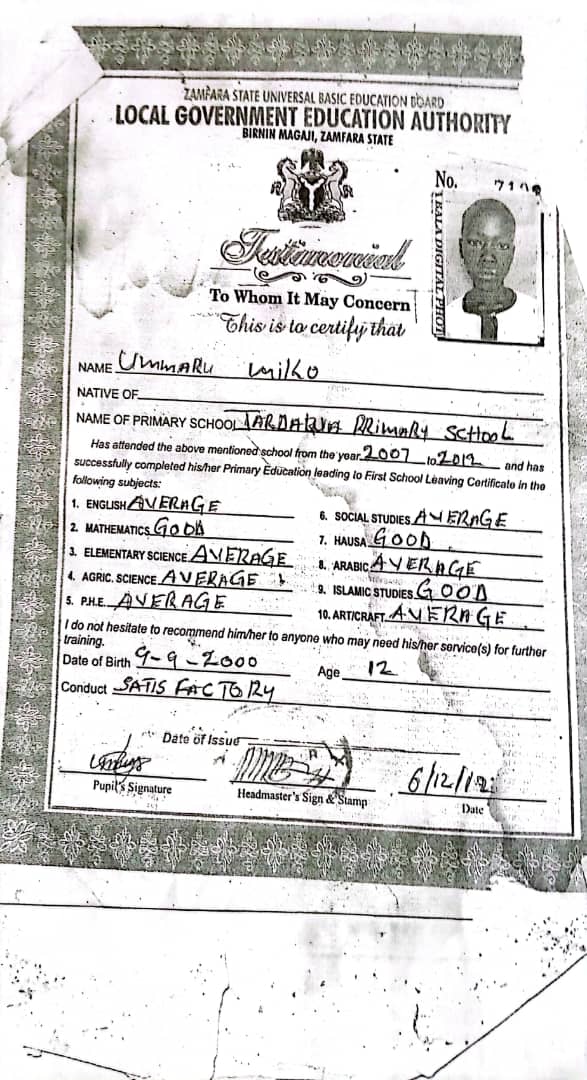 ZAMFARA STATE UNIVERSAL BASIC EDUCATION BOARD
LOCAL GOVERNMENT EDUCATION AUTHORITY
BIRNIN MAGAJI, ZAMFARA STATE
No.
Testimonial
To Whom It May Concern
This is to certify that
NAME UMMARU
NATIVE OF
NAME OF PRIMARY SCHOOL PRIMARY SCHOOL
Has attended the above mentioned school from the year 2007 to 2012 and has
successfully completed his/her Primary Education leading to First School Leaving Certificate in the
following subjects:
1. ENGLISH AVERAGE
2. MATHEMATICS GOOD
3. ELEMENTARY SCIENCE AVERAGE
4. AGRIC. SCIENCE AVERAGE
5. P.H.E. AVERAGE
6. SOCIAL STUDIES AVERAGE
7. HAUSA GOOD
8. ARABIC AVERAGE
9. ISLAMIC STUDIES GOOD
10. ART/CRAFT AVERAGE
I do not hesitate to recommend him/her to anyone who may need his/her service(s) for further
training.
Date of Birth 9-9-2000 Age 12
Conduct SATISFACTORY
Date of Issue
6/12/12
Pupil's Signature Headmaster's Sign & Stamp Date